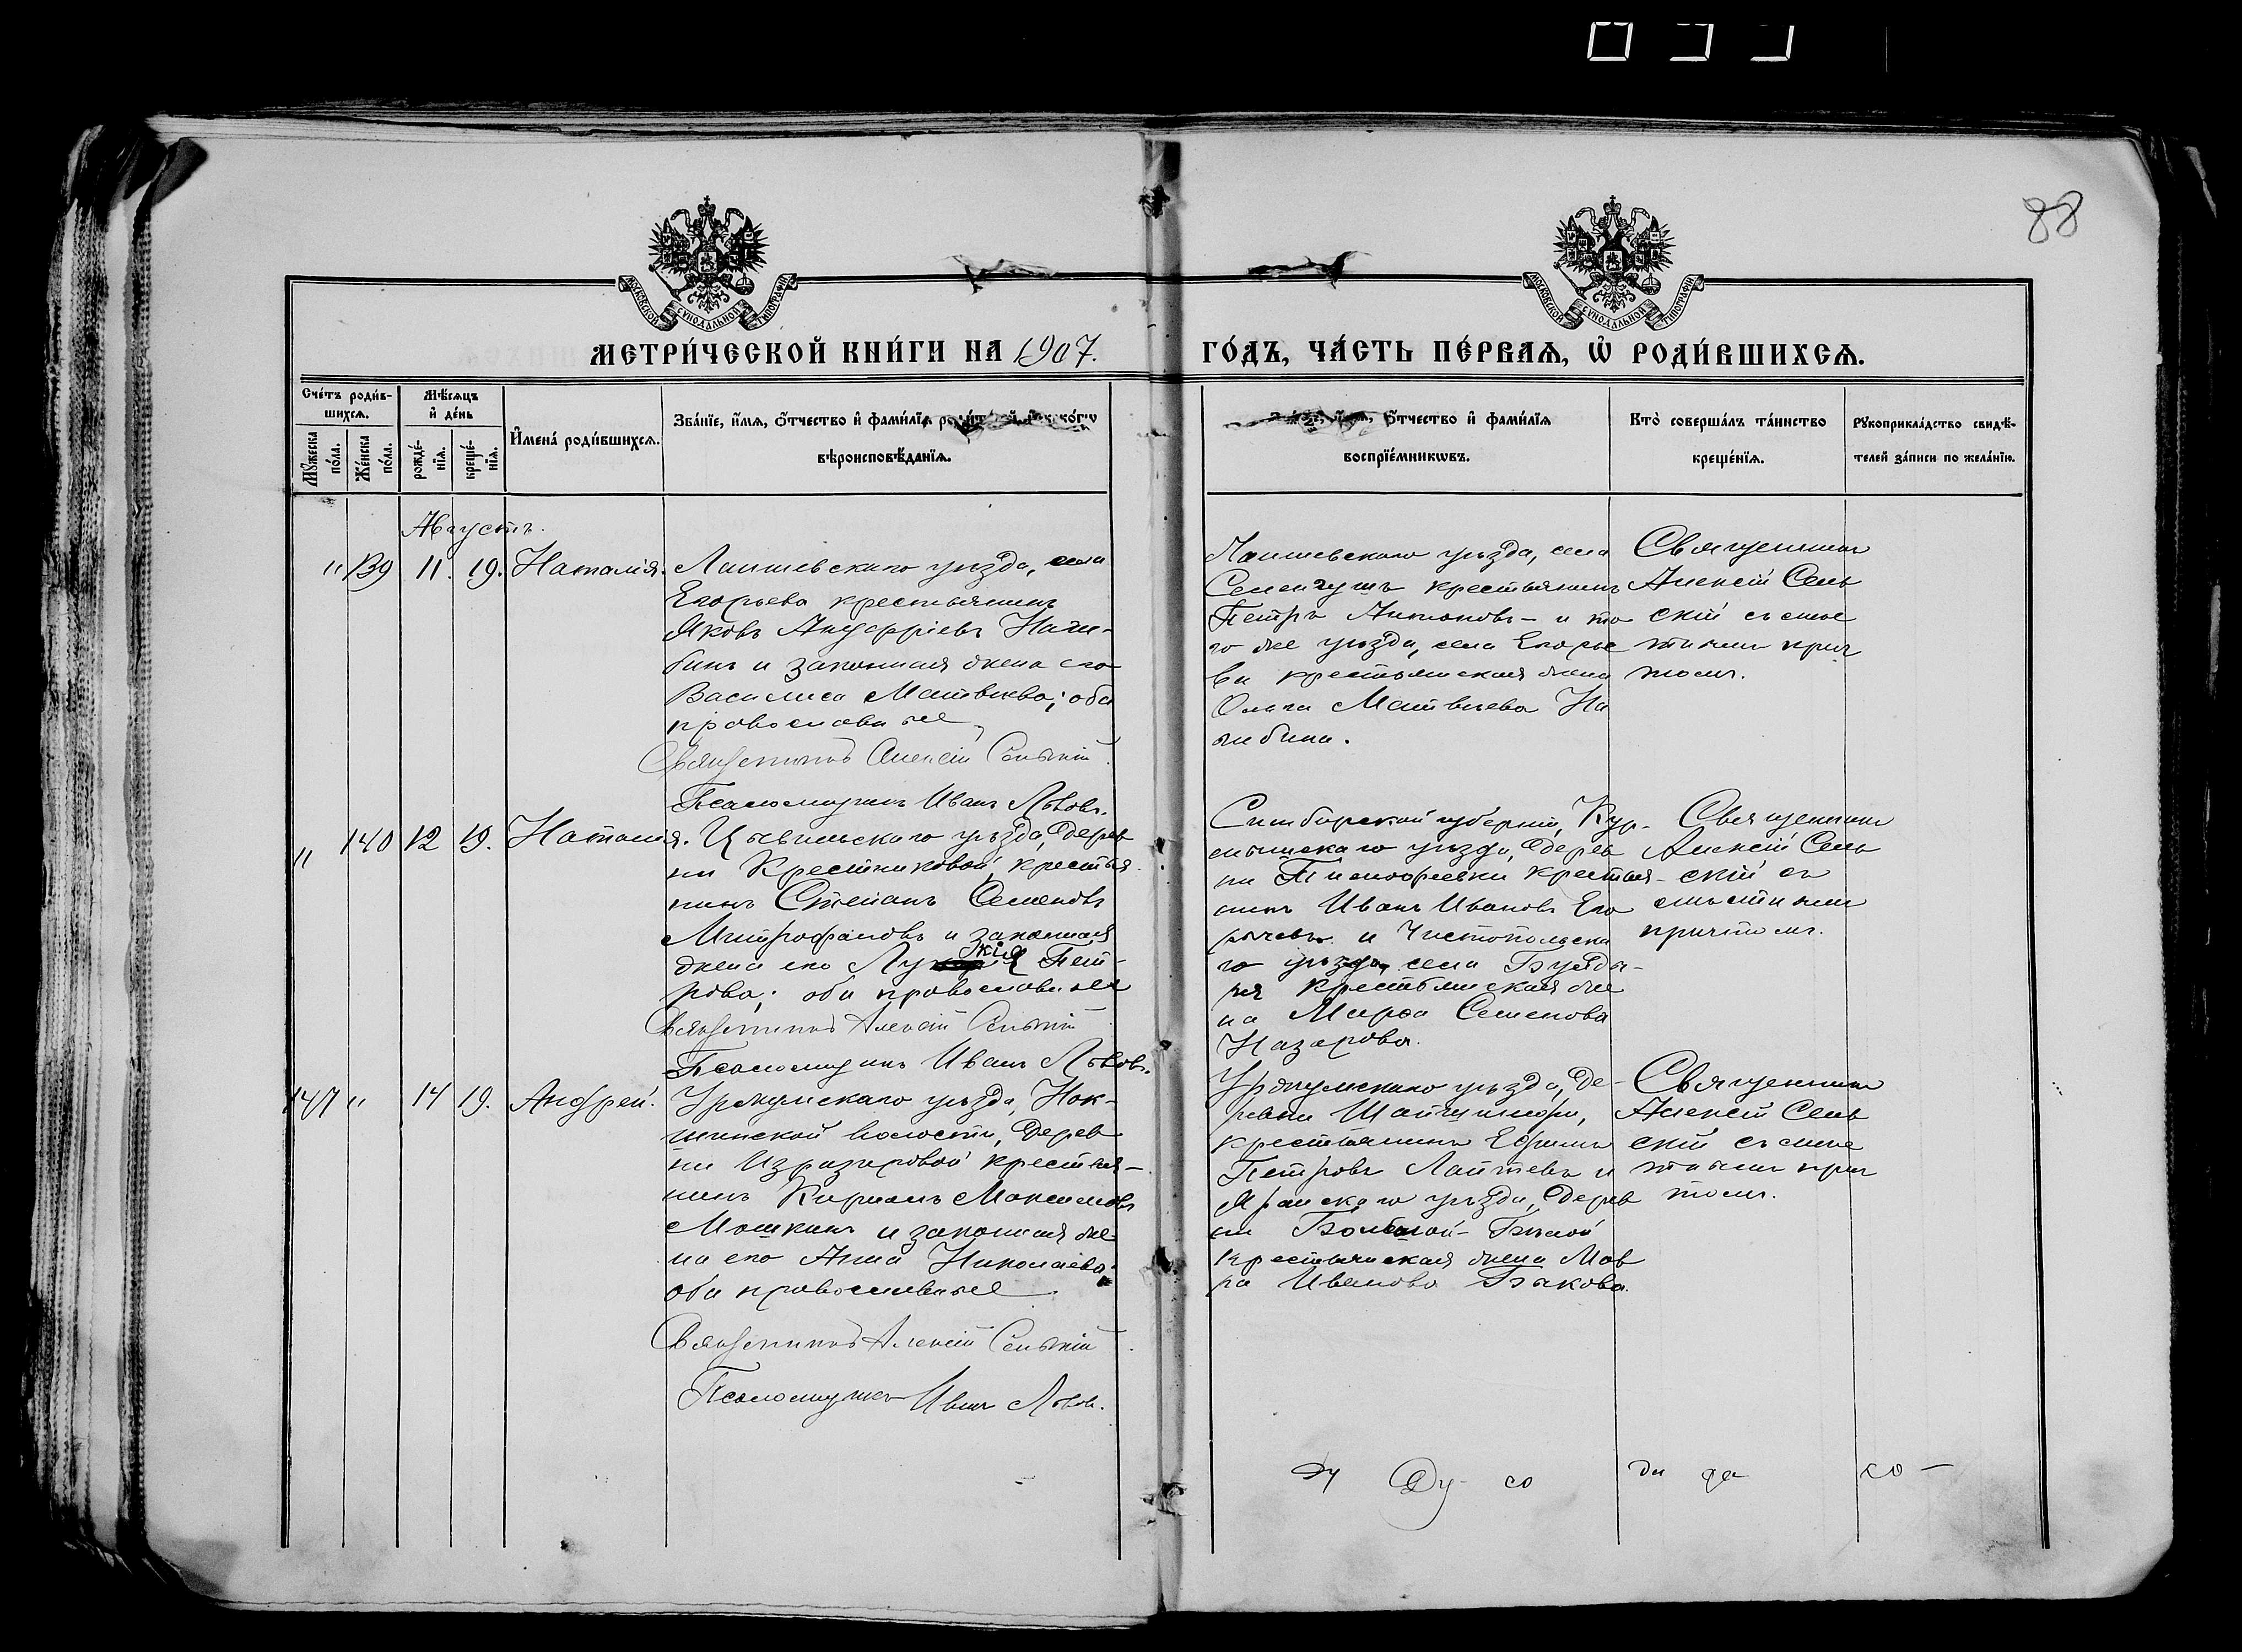 88
МОСКОВСКОЙ СУНОДАЛЬНОЙ ТИПОГРАФІИ
МОСКОВСКОЙ СУНОДАЛЬНОЙ ТИПОГРАФІИ
МЕТРИ́ЧЕСКОЙ КНИ́ГИ НА 1907.
ГО́ДЪ, ЧА́СТЬ ПЕ́РВАѦ, Ѡ҆ РОДИ́ВШИХСѦ.
Сче́тъ роди́в-
шихсѧ.
Мꙋ́жеска
по́ла.
Же́нска
по́ла.
Мѣ́сѧцъ
и҆ де́нь
рожде́-
нїѧ.
креще́-
нїѧ.
И҆мена̀ роди́вшихсѧ.
Зва́нїе, и҆́мѧ, ѻ҆́тчество и҆ фами́лїѧ
вѣроисповѣ́данїѧ.
ѻ҆́тчество и҆ фами́лїѧ
воспрїе́мникѡвъ.
Кто̀ соверша́лъ та́инство
креще́нїѧ.
Рꙋкоприкла́дство свидѣ́-
телей за́писи по жела́нїю.
Августъ.
" 139 11. 19. Наталія.
Лаишевскаго уѣзда, села
Егорьева крестьянинъ
Яковъ Андреевъ
и законная жена его
Василиса Матвѣева; оба
православные
Священникъ Алексій Сельскій.
Псаломщикъ Иванъ Львовъ.
Лаишевскаго уѣзда, села
крестьянинъ
Петръ Антоновъ - и то
го же уѣзда, села Егорье
ва крестьянская жена
Ольга Матвѣева На
либина.
Священникъ
Алексій Сель
скій съ мѣс
тнымъ прич
томъ.
" 140 12 19. Наталія.
Цывильскаго уѣзда, дерев
ни Крестниковой, крестья
нинъ Степанъ Семеновъ
Митрофановъ и законная
жена его Лукія Пет-
рова; оба православные
Священникъ Алексій Сельскій
Псаломщикъ Иванъ Львовъ.
Симбирской губерніи, Кур-
мышскаго уѣзда, дерев
ни Тимофеевки крестья-
нинъ Иванъ Ивановъ Его
рычевъ и Чистопольска
го уѣзда, села
крестьянская же
на Марфа Семенова
Назарова.
Священникъ
Алексій Сель
скій съ
мѣстнымъ
причтомъ.
147 " 14 19. Андрей.
Уржумскаго уѣзда, Нок-
шинской волости, дерев
ни крестья-
нинъ Максимовъ
Мошкинъ и законная же
на его Анна Николаева
оба православные
Священникъ Алексій Сельскій.
Псаломщикъ Иванъ Львовъ.
Уржумскаго уѣзда, де-
ревни
крестьянинъ Ефимъ
Петровъ Лаптевъ и
Яранскаго уѣзда, дерев
ни Большой-
крестьянская жена Мав
ра Иванова Быкова.
Священникъ
Алексій Сель
скій съ мѣс
тнымъ прич
томъ.